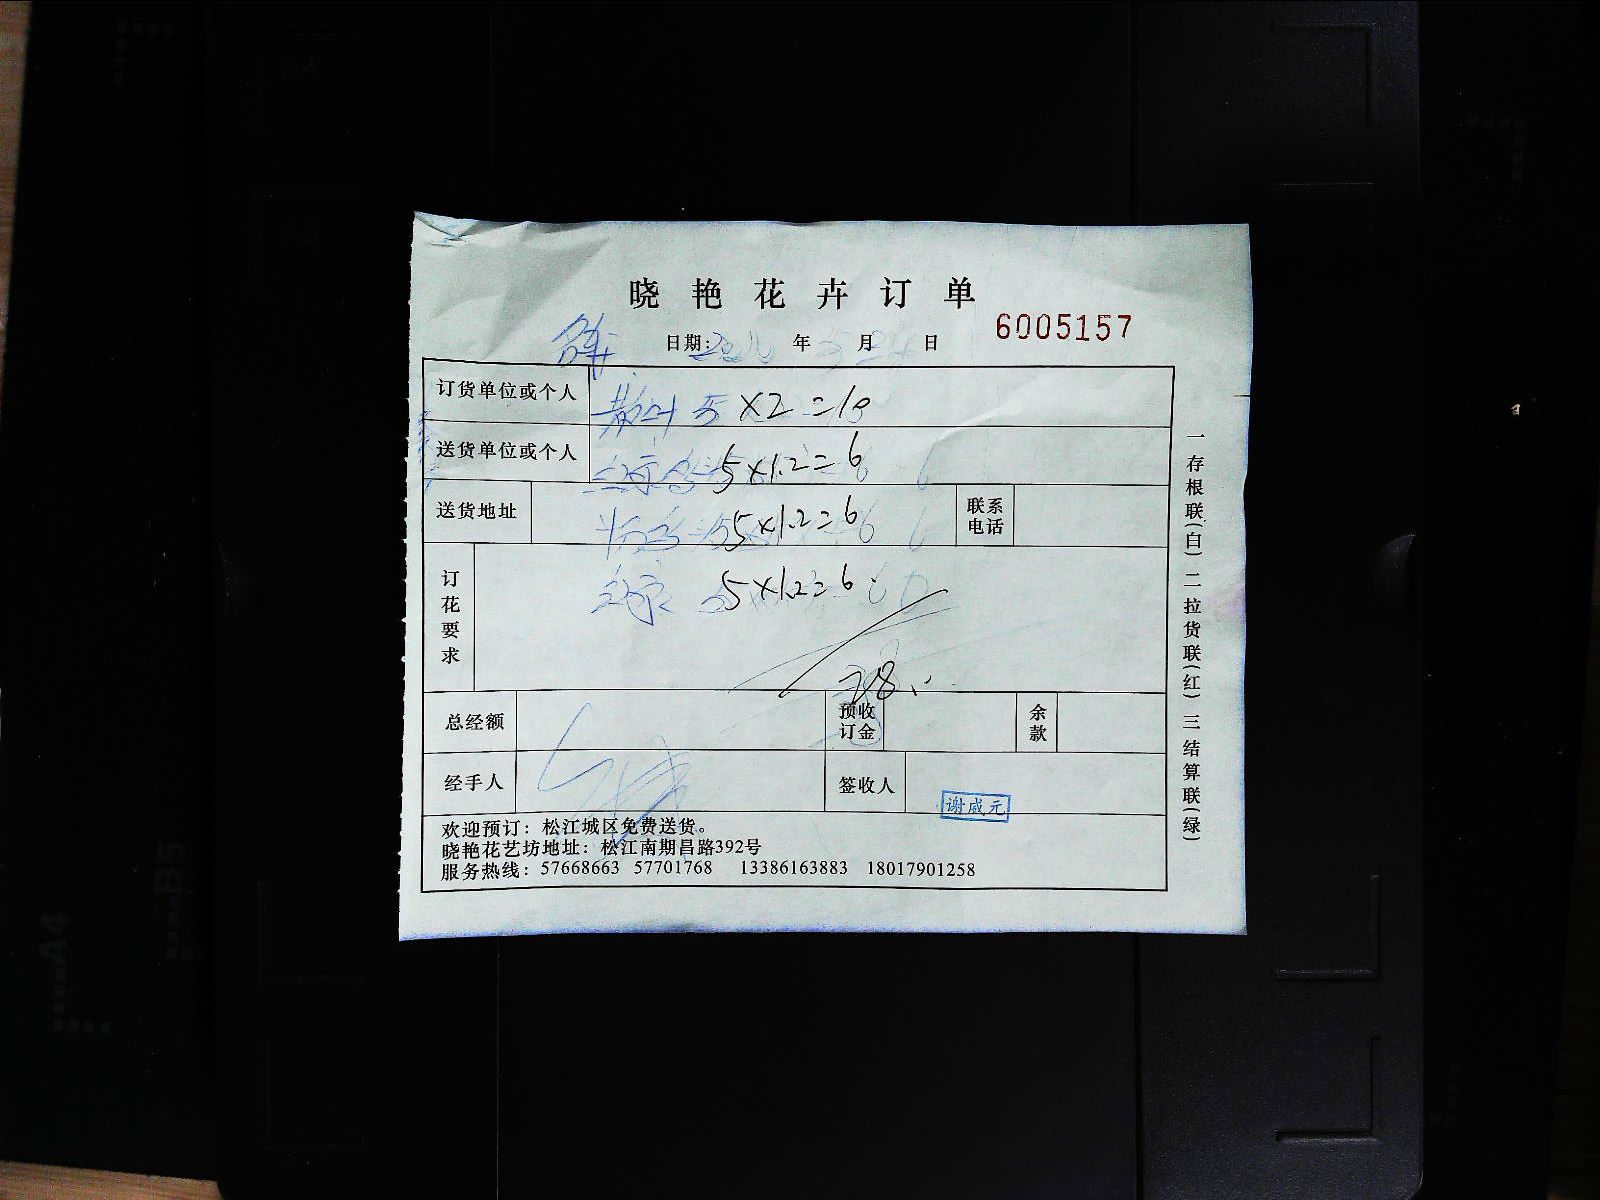 晓艳花卉订单
日期: 年 月 日
6005157
订货单位或个人 ×2=10
送货单位或个人 5×1.2=6
送货地址 5×1.2=6 联系电话
订花要求 5×1.2=6
28
总经额 预收订金 余款
经手人 签收人 谢咸元
欢迎预订：松江城区免费送货。
晓艳花艺坊地址：松江南期昌路392号
服务热线：57668663 57701768 13386163883 18017901258
一存根联(白) 二拉货联(红) 三结算联(绿)
A4
B5